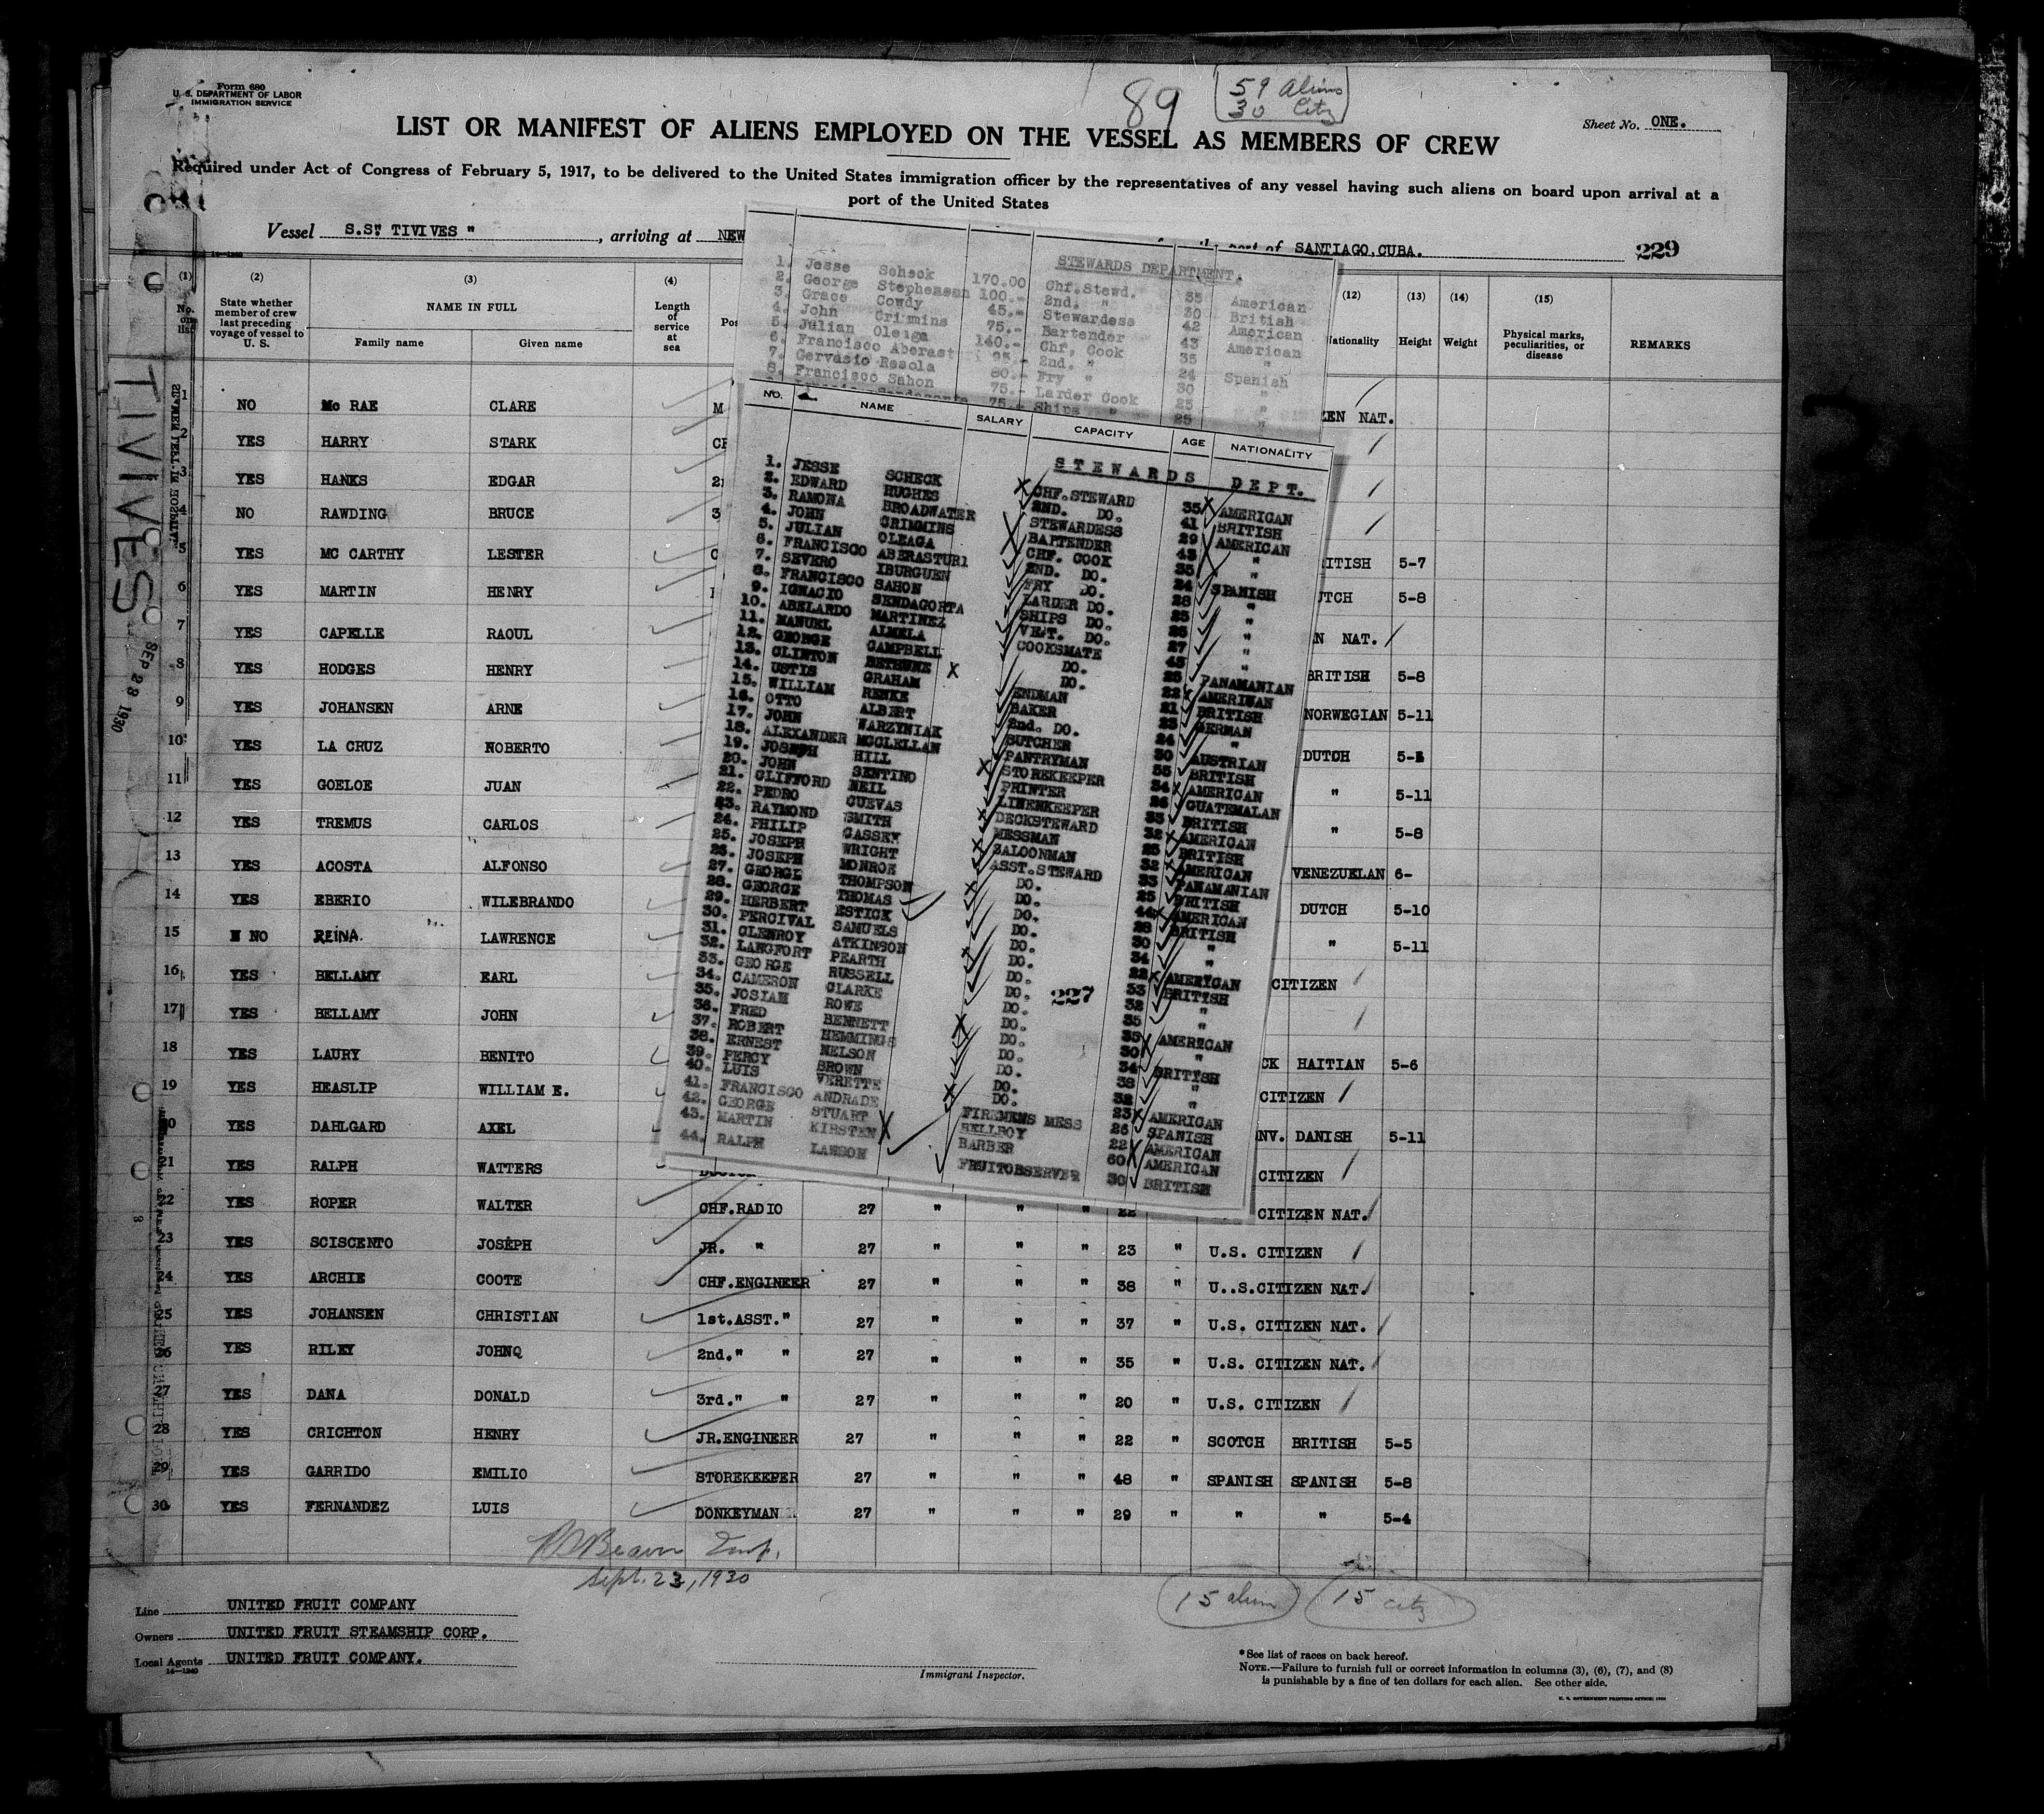 Form 680
U. S. DEPARTMENT OF LABOR
IMMIGRATION SERVICE
89
59 Aliens
30 City
Sheet No. ONE.
LIST OR MANIFEST OF ALIENS EMPLOYED ON THE VESSEL AS MEMBERS OF CREW
Required under Act of Congress of February 5, 1917, to be delivered to the United States immigration officer by the representatives of any vessel having such aliens on board upon arrival at a
port of the United States
Vessel S.S." TIVIVES ", arriving at NEW port of SANTIAGO, CUBA. 229
(1) (2) (3) (4) (12) (13) (14) (15)
No. on list State whether member of crew last preceding voyage of vessel to U. S. NAME IN FULL Family name Given name Length of service at sea Pos Nationality Height Weight Physical marks, peculiarities, or disease REMARKS
1 NO Mc RAE CLARE M ZEN NAT.
2 YES HARRY STARK
3 YES HANKS EDGAR
4 NO RAWDING BRUCE 3
5 YES MC CARTHY LESTER ITISH 5-7
6 YES MARTIN HENRY UTCH 5-8
7 YES CAPELLE RAOUL N NAT.
8 YES HODGES HENRY BRITISH 5-8
9 YES JOHANSEN ARNE NORWEGIAN 5-11
10 YES LA CRUZ NOBERTO DUTCH
11 YES GOELOE JUAN " 5-11
12 YES TREMUS CARLOS " 5-8
13 YES ACOSTA ALFONSO VENEZUELAN 6-
14 YES EBERIO WILEBRANDO DUTCH 5-10
15 NO REINA LAWRENCE " 5-11
16 YES BELLAMY EARL CITIZEN
17 YES BELLAMY JOHN
18 YES LAURY BENITO CK HAITIAN 5-6
19 YES HEASLIP WILLIAM E. CITIZEN
20 YES DAHLGARD AXEL NV. DANISH 5-11
21 YES RALPH WATTERS CITIZEN
22 YES ROPER WALTER CHF.RADIO 27 " " " 22 CITIZEN NAT.
23 YES SCISCENTO JOSEPH JR. " 27 " " " 23 " U.S. CITIZEN
24 YES ARCHIE COOTE CHF.ENGINEER 27 " " " 38 " U..S.CITIZEN NAT.
25 YES JOHANSEN CHRISTIAN 1st.ASST." 27 " " " 37 " U.S. CITIZEN NAT.
26 YES RILEY JOHNQ 2nd." " 27 " " " 35 " U.S. CITIZEN NAT.
27 YES DANA DONALD 3rd." " 27 " " " 20 " U.S. CITIZEN
28 YES CRICHTON HENRY JR.ENGINEER 27 " " " 22 " SCOTCH BRITISH 5-5
29 YES GARRIDO EMILIO STOREKEEPER 27 " " " 48 " SPANISH SPANISH 5-8
30 YES FERNANDEZ LUIS DONKEYMAN 27 " " " 29 " " " 5-4
Sept. 23, 1930
15 alien 15 city
Line UNITED FRUIT COMPANY
Owners UNITED FRUIT STEAMSHIP CORP.
Local Agents UNITED FRUIT COMPANY.
14—1240
Immigrant Inspector.
*See list of races on back hereof.
NOTE.—Failure to furnish full or correct information in columns (3), (6), (7), and (8)
is punishable by a fine of ten dollars for each alien. See other side.
U. S. GOVERNMENT PRINTING OFFICE
TIVIVES
SEP 28 1930
STEWARDS DEPARTMENT.
1. Jesse Scheck 170.00 Chf.Stewd. 35 American
2. George Stephenson 100.- 2nd. " 30 British
3. Grace Cowdy 45.- Stewardess 42 American
4. John Crimmins 75.- Bartender 43 American
5. Julian Oleaga 140.- Chf. Cook 35 "
6. Francisco Aberast 95.- 2nd. " 24 Spanish
7. Gervasio Resola 80.- Fry " 30 "
8. Francisco Sahon 75.- Larder Cook 25 "
75.- Ships " 25 "
NO. NAME SALARY CAPACITY AGE NATIONALITY
STEWARDS DEPT.
1. JESSE SCHECK CHF.STEWARD 35 AMERICAN
2. EDWARD HUGHES 2ND. DO. 41 BRITISH
3. RAMONA BROADWATER STEWARDESS 29 AMERICAN
4. JOHN CRIMMINS BARTENDER 43 "
5. JULIAN OLEAGA CHF. COOK 35 "
6. FRANCISCO ABERASTURI 2ND. DO. 24 SPANISH
7. SEVERO IBURGUEN FRY DO. 28 "
8. FRANCISCO SAHON LARDER DO. 25 "
9. IGNACIO SENDAGORTA SHIPS DO. 25 "
10. ABELARDO MARTINEZ VET. DO. 27 "
11. MANUEL ALMELA COOKSMATE 43 "
12. GEORGE CAMPBELL DO. 23 PANAMANIAN
13. CLINTON BETHUNE DO. 22 AMERICAN
14. USTIS GRAHAM ENDMAN 21 BRITISH
15. WILLIAM RENKE BAKER 23 GERMAN
16. OTTO ALBERT 2nd. DO. 24 "
17. JOHN WARZYNIAK BUTCHER 30 AUSTRIAN
18. ALEXANDER MCCLELLAN PANTRYMAN 35 BRITISH
19. JOSEPH HILL STOREKEEPER 34 AMERICAN
20. JOHN SENTINO PRINTER 26 GUATEMALAN
21. CLIFFORD NEIL LINENKEEPER 33 BRITISH
22. PEDRO CUEVAS DECKSTEWARD 32 AMERICAN
23. RAYMOND SMITH MESSMAN 25 BRITISH
24. PHILIP GASSEY SALOONMAN 32 AMERICAN
25. JOSEPH WRIGHT ASST.STEWARD 33 PANAMANIAN
26. JOSEPH MONROE DO. 25 BRITISH
27. GEORGE THOMPSON DO. 44 AMERICAN
28. GEORGE THOMAS DO. 28 BRITISH
29. HERBERT ESTICK DO. 30 "
30. PERCIVAL SAMUELS DO. 34 "
31. GLENROY ATKINSON DO. 22 AMERICAN
32. LANGFORT PEARTH DO. 33 BRITISH
33. GEORGE RUSSELL DO. 32 "
34. CAMERON CLARKE DO. 35 "
35. JOSIAH ROWE DO. 35 AMERICAN
36. FRED BENNETT DO. 30 "
37. ROBERT HEMMINGS DO. 34 BRITISH
38. ERNEST NELSON DO. 38 "
39. PERCY BROWN DO. 32 "
40. LUIS VERETTE DO. 23 AMERICAN
41. FRANCISCO ANDRADE FIREMENS MESS 26 SPANISH
42. GEORGE STUART BELLBOY 22 AMERICAN
43. MARTIN KIRSTEN BARBER 60 AMERICAN
44. RALPH LAWSON FRUITOBSERVER 30 BRITISH
227